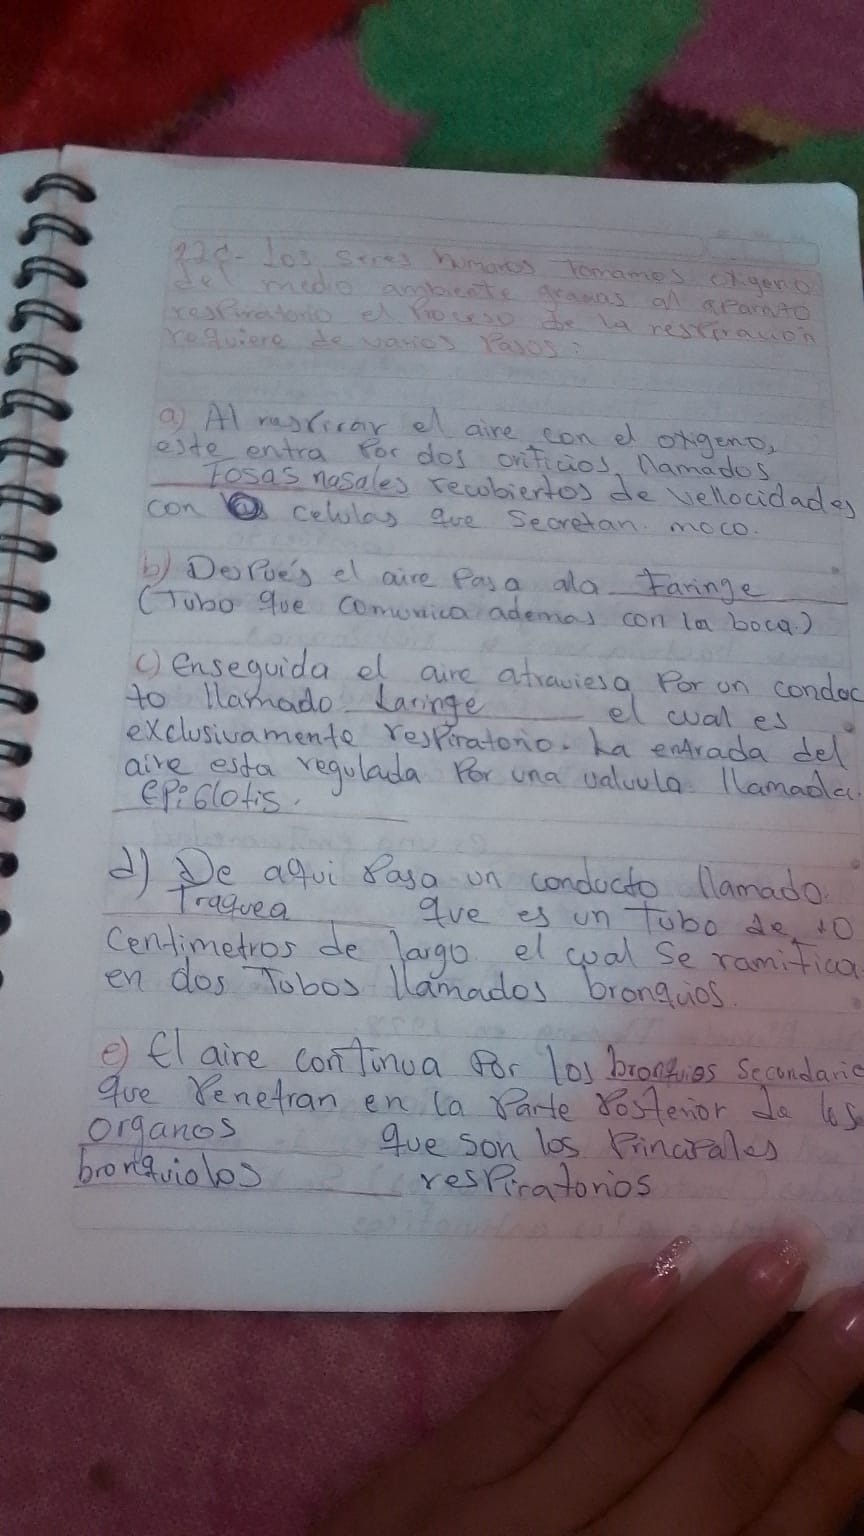 22d- Los seres humanos tomamos oxigeno
del medio ambiente gracias al aparato
respiratorio el Proceso de la respiración
requiere de varios Pasos:
a) Al respirar el aire con el oxigeno,
este entra Por dos orificios llamados
Fosas nasales recobiertos de vellocidades
con celulas que secretan moco.
b) Después el aire Pasa ala Faringe
(Tubo que comunica ademas con la boca.)
c) Enseguida el aire atraviesa Por un condoc
to llamado Laringe el cual es
exclusivamente resPiratorio. La entrada del
aire esta regulada Por una valvula llamada
ePiGlotis.
d) De aqui Pasa un conducto llamado
Traquea que es un Tubo de 10
Centimetros de largo el cual Se ramifica
en dos Tubos llamados bronquios.
e) El aire continua Por los bronquios Secundario
que Penetran en la Parte Posterior de los
Organos que son los PrinciPales
bronquiolos resPiratorios